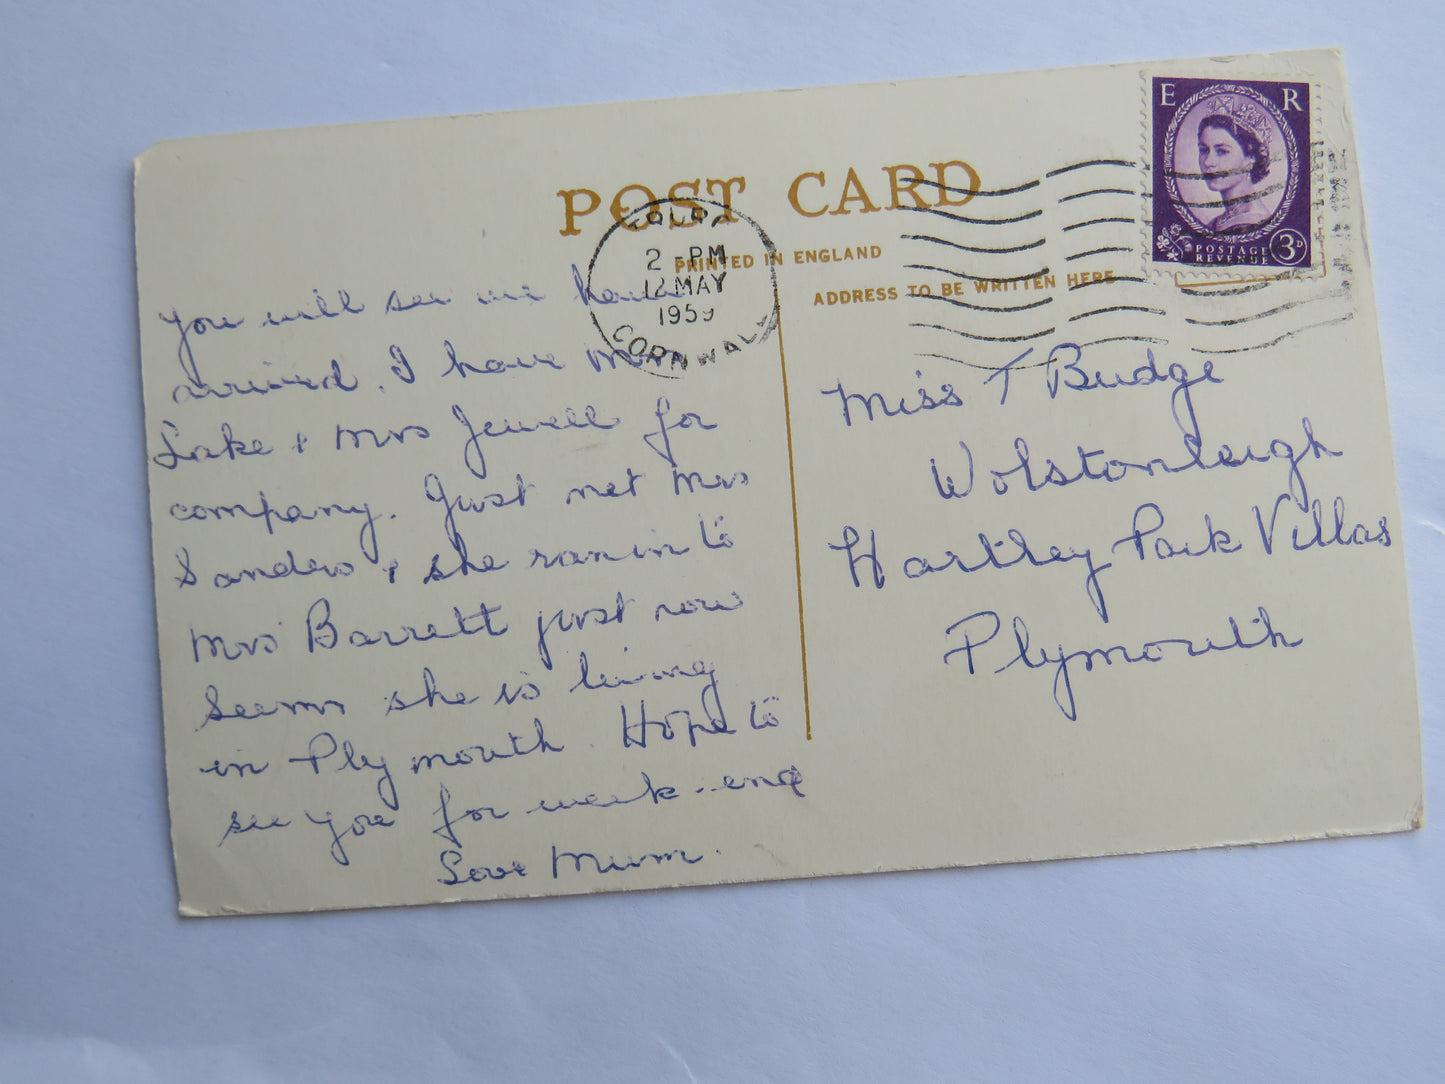 POST CARD
PRINTED IN ENGLAND
ADDRESS TO BE WRITTEN HERE
E R
POSTAGE
REVENUE
3D
2 - PM
12 MAY
1959
CORNWALL
You will see we have
arrived. I have Mrs
Lake & Mrs Jewell for
company. Just met Mrs
Sanders & she ran in to
Mrs Barrett just now
seems she is living
in Plymouth. Hope to
see you for week-end
Love Mum.
Miss T Budge
Wolstonleigh
Hartley Park Villas
Plymouth